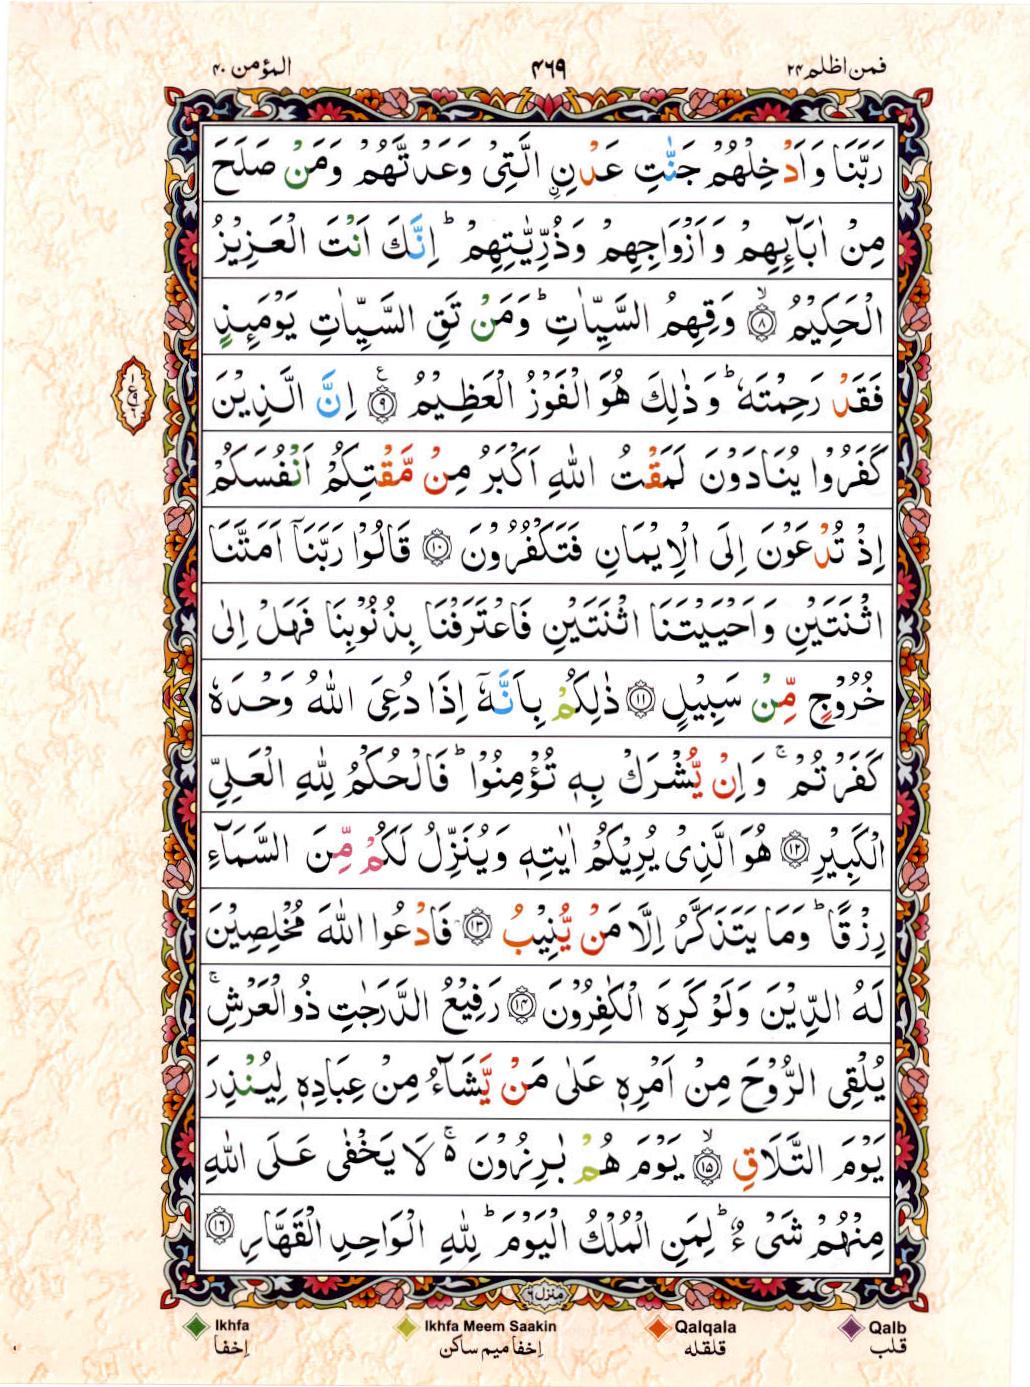 فمن اظلم ۲۴
۴۶۹
المؤمن ۴۰
رَبَّنَا وَاَدْخِلْهُمْ جَنّٰتِ عَدْنِ ۨالَّتِیْ وَعَدْتَّهُمْ وَمَنْ صَلَحَ
مِنْ اٰبَآئِهِمْ وَاَزْوَاجِهِمْ وَذُرِّیّٰتِهِمْ ؕ اِنَّكَ اَنْتَ الْعَزِیْزُ
الْحَكِیْمُ ۙ﴿۸﴾ وَقِهِمُ السَّیِّاٰتِ ؕ وَمَنْ تَقِ السَّیِّاٰتِ یَوْمَئِذٍ
فَقَدْ رَحِمْتَهٗ ؕ وَذٰلِكَ هُوَ الْفَوْزُ الْعَظِیْمُ ﴿۹﴾ ع اِنَّ الَّذِیْنَ
كَفَرُوْا یُنَادَوْنَ لَمَقْتُ اللّٰهِ اَكْبَرُ مِنْ مَّقْتِكُمْ اَنْفُسَكُمْ
اِذْ تُدْعَوْنَ اِلَی الْاِیْمَانِ فَتَكْفُرُوْنَ ﴿۱۰﴾ قَالُوْا رَبَّنَاۤ اَمَتَّنَا
اثْنَتَیْنِ وَاَحْیَیْتَنَا اثْنَتَیْنِ فَاعْتَرَفْنَا بِذُنُوْبِنَا فَهَلْ اِلٰی
خُرُوْجٍ مِّنْ سَبِیْلٍ ﴿۱۱﴾ ذٰلِكُمْ بِاَنَّهٗۤ اِذَا دُعِیَ اللّٰهُ وَحْدَهٗ
كَفَرْتُمْ ۚ وَاِنْ یُّشْرَكْ بِهٖ تُؤْمِنُوْا ؕ فَالْحُكْمُ لِلّٰهِ الْعَلِیِّ
الْكَبِیْرِ ﴿۱۲﴾ هُوَ الَّذِیْ یُرِیْكُمْ اٰیٰتِهٖ وَیُنَزِّلُ لَكُمْ مِّنَ السَّمَآءِ
رِزْقًا ؕ وَمَا یَتَذَكَّرُ اِلَّا مَنْ یُّنِیْبُ ﴿۱۳﴾ فَادْعُوا اللّٰهَ مُخْلِصِیْنَ
لَهُ الدِّیْنَ وَلَوْ كَرِهَ الْكٰفِرُوْنَ ﴿۱۴﴾ رَفِیْعُ الدَّرَجٰتِ ذُو الْعَرْشِ ۚ
یُلْقِی الرُّوْحَ مِنْ اَمْرِهٖ عَلٰی مَنْ یَّشَآءُ مِنْ عِبَادِهٖ لِیُنْذِرَ
یَوْمَ التَّلَاقِ ۙ﴿۱۵﴾ یَوْمَ هُمْ بٰرِزُوْنَ ۚ۬ لَا یَخْفٰی عَلَی اللّٰهِ
مِنْهُمْ شَیْءٌ ؕ لِمَنِ الْمُلْكُ الْیَوْمَ ؕ لِلّٰهِ الْوَاحِدِ الْقَهَّارِ ﴿۱۶﴾
منزل ۶
Ikhfa
اِخفا
Ikhfa Meem Saakin
اِخفا میم ساکن
Qalqala
قلقله
Qalb
قلب